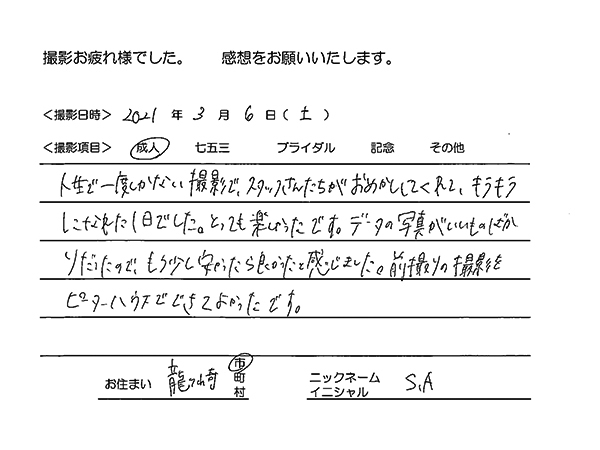 撮影お疲れ様でした。 感想をお願いいたします。
<撮影日時> 2021 年 3 月 6 日(土)
<撮影項目> 成人 七五三 ブライダル 記念 その他
人生で一度しかない撮影で、スタッフさんたちがおめかししてくれて、キラキラ
した1日でした。とっても楽しかったです。データの写真がいいものばか
りだったので、もう少し安かったら良かったと感じました。前撮りの撮影を
ピーターハウスでできてよかったです。
お住まい 龍ケ崎 市
町
村
ニックネーム
イニシャル S.A